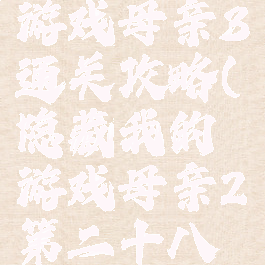 游戏母亲3
通关攻略(
隐藏我的
游戏母亲2
第二十八